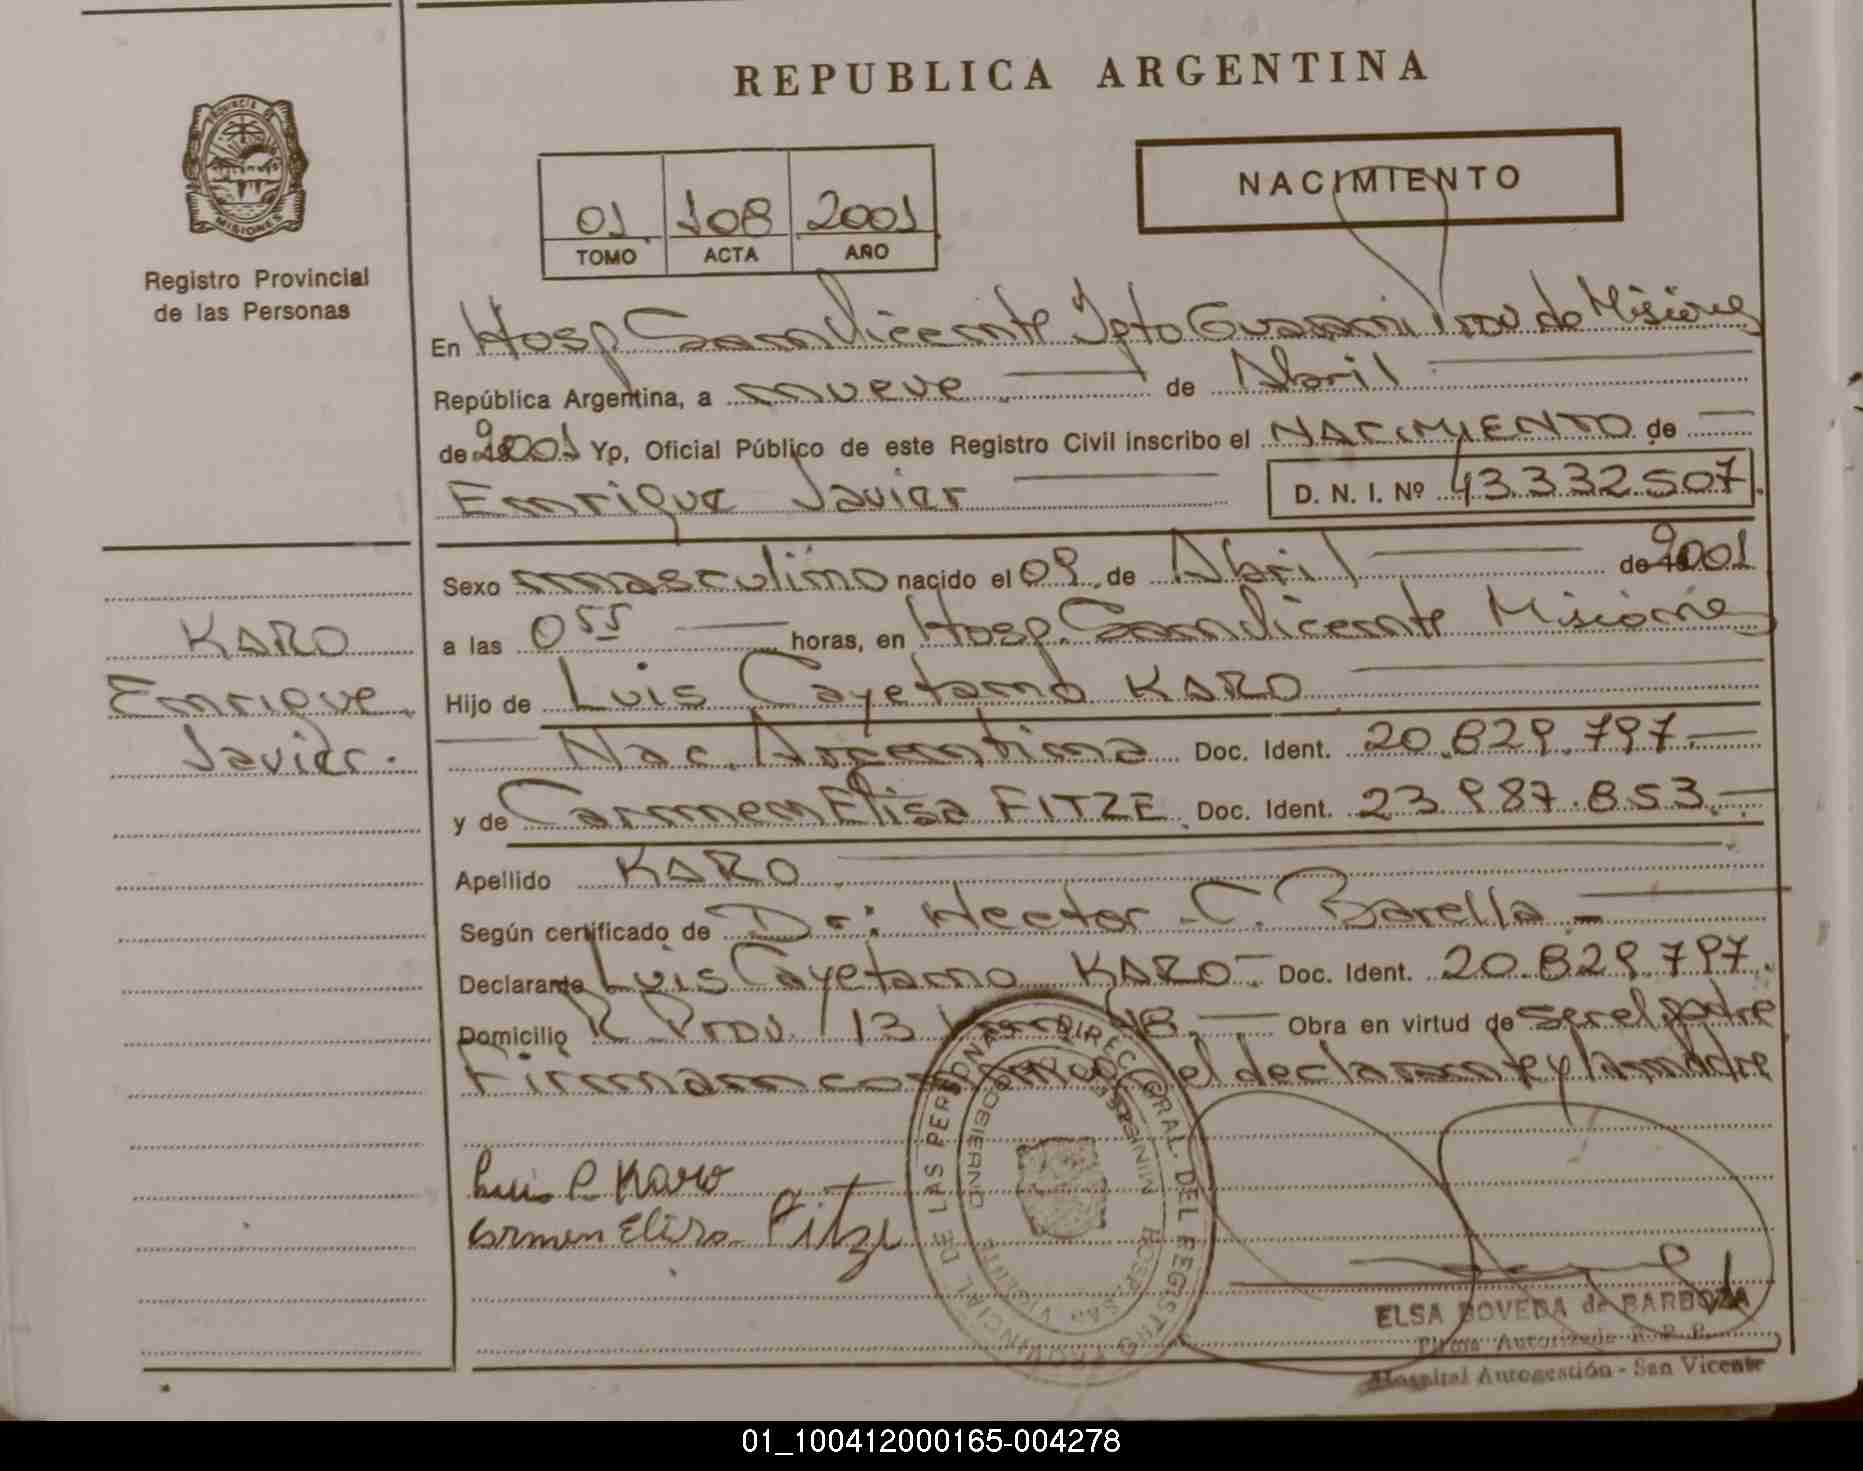 REPUBLICA ARGENTINA
PROVINCIA DE
MISIONES
Registro Provincial
de las Personas
01 108 2001
TOMO ACTA AÑO
NACIMIENTO
En Hosp San Vicente Dpto Guarani Prov de Misiones
República Argentina, a nueve de Abril
de 2001 Yo, Oficial Público de este Registro Civil inscribo el NACIMIENTO de
Enrique Javier D. N. I. Nº 43.332.507
Sexo masculino nacido el 09 de Abril de 2001
a las 0 55 horas, en Hosp. San Vicente Misiones
Hijo de Luis Cayetano KARO
Nac. Argentina Doc. Ident. 20.829.797.
y de Carmen Elisa FITZE Doc. Ident. 23.987.853.
Apellido KARO
Según certificado de Dr: Hector C. Barella
Declarante Luis Cayetano KARO Doc. Ident. 20.829.797.
Domicilio R. Prov. 13 48. Obra en virtud de ser el padre
Firman el declarante y la madre
KARO
Enrique
Javier.
Luis C. Karo
Carmen Elisa Fitze
DIREC GRAL. DEL REGISTRO PROVINCIAL DE LAS PERSONAS
GOBIERNO
HOSP. SAN VICENTE
ELSA BOVEDA de BARBOZA
Firma Autorizada R. P. P.
Hospital Autogestión - San Vicente
01_100412000165-004278